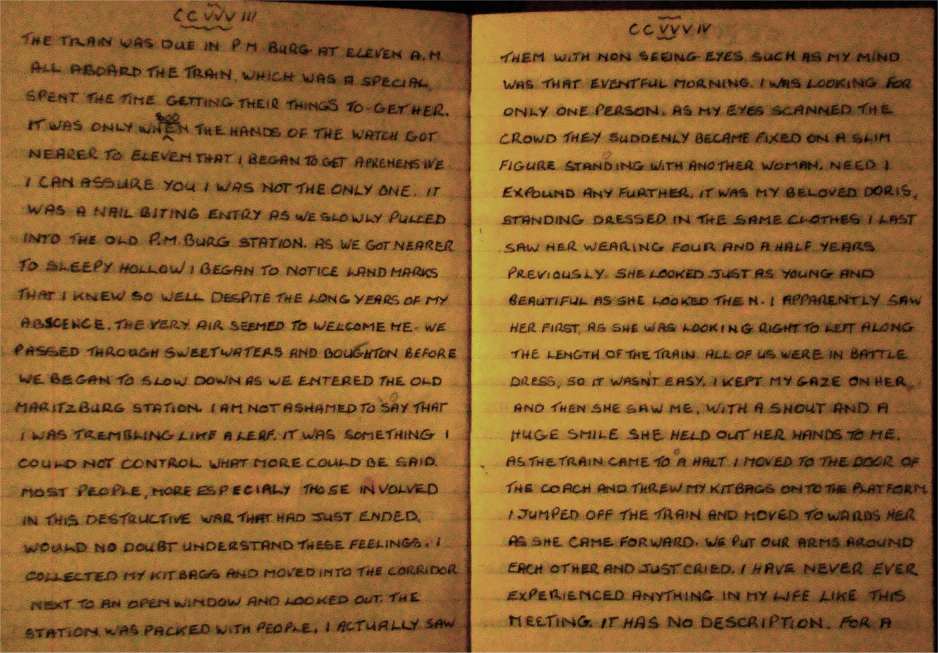 CCVVVIII
THE TRAIN WAS DUE IN P.M. BURG AT ELEVEN A.M.
ALL ABOARD THE TRAIN, WHICH WAS A SPECIAL,
SPENT THE TIME GETTING THEIR THINGS TO-GETHER.
IT WAS ONLY WHEN THE HANDS OF THE WATCH GOT
NEARER TO ELEVEN THAT I BEGAN TO GET APREHENSIVE
I CAN ASSURE YOU I WAS NOT THE ONLY ONE. IT
WAS A NAIL BITING ENTRY AS WE SLOWLY PULLED
INTO THE OLD P.M. BURG STATION. AS WE GOT NEARER
TO SLEEPY HOLLOW I BEGAN TO NOTICE LAND MARKS
THAT I KNEW SO WELL DESPITE THE LONG YEARS OF MY
ABSCENCE. THE VERY AIR SEEMED TO WELCOME ME. WE
PASSED THROUGH SWEETWATERS AND BOUGHTON BEFORE
WE BEGAN TO SLOW DOWN AS WE ENTERED THE OLD
MARITZBURG STATION. I AM NOT ASHAMED TO SAY THAT
I WAS TREMBLING LIKE A LEAF. IT WAS SOMETHING I
COULD NOT CONTROL. WHAT MORE COULD BE SAID.
MOST PEOPLE, MORE ESPECIALY THOSE INVOLVED
IN THIS DESTRUCTIVE WAR THAT HAD JUST ENDED,
WOULD NO DOUBT UNDERSTAND THESE FEELINGS. I
COLLECTED MY KITBAGS AND MOVED INTO THE CORRIDOR
NEXT TO AN OPEN WINDOW AND LOOKED OUT. THE
STATION WAS PACKED WITH PEOPLE. I ACTUALLY SAW
CCVVVIV
THEM WITH NON SEEING EYES. SUCH AS MY MIND
WAS THAT EVENTFUL MORNING. I WAS LOOKING FOR
ONLY ONE PERSON. AS MY EYES SCANNED THE
CROWD THEY SUDDENLY BECAME FIXED ON A SLIM
FIGURE STANDING WITH ANOTHER WOMAN. NEED I
EXPOUND ANY FURTHER. IT WAS MY BELOVED DORIS,
STANDING DRESSED IN THE SAME CLOTHES I LAST
SAW HER WEARING FOUR AND A HALF YEARS
PREVIOUSLY. SHE LOOKED JUST AS YOUNG AND
BEAUTIFUL AS SHE LOOKED THEN. I APPARENTLY SAW
HER FIRST, AS SHE WAS LOOKING RIGHT TO LEFT ALONG
THE LENGTH OF THE TRAIN. ALL OF US WERE IN BATTLE
DRESS, SO IT WASN'T EASY. I KEPT MY GAZE ON HER,
AND THEN SHE SAW ME. WITH A SHOUT AND A
HUGE SMILE SHE HELD OUT HER HANDS TO ME.
AS THE TRAIN CAME TO A HALT I MOVED TO THE DOOR OF
THE COACH AND THREW MY KITBAGS ON TO THE PLATFORM.
I JUMPED OFF THE TRAIN AND MOVED TOWARDS HER
AS SHE CAME FORWARD. WE PUT OUR ARMS AROUND
EACH OTHER AND JUST CRIED. I HAVE NEVER EVER
EXPERIENCED ANYTHING IN MY LIFE LIKE THIS
MEETING. IT HAS NO DESCRIPTION. FOR A